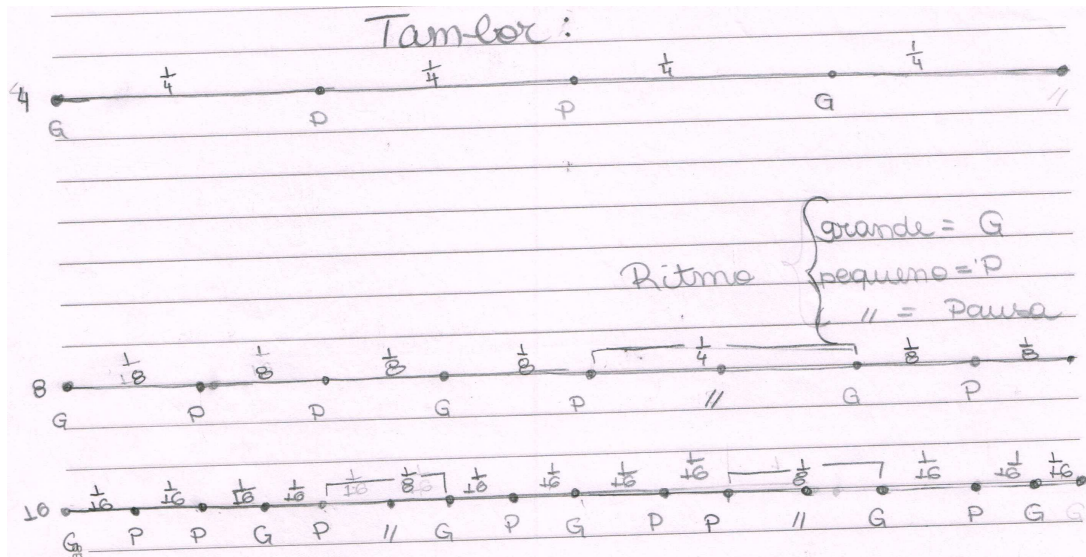 Tambor:
1/4 1/4 1/4 1/4
4
G P P G //
grande = G
Ritmo pequeno = P
// = Pausa
1/8 1/8 1/8 1/8 1/4 1/8 1/8
8
G P P G P // G P
1/16 1/16 1/16 1/16 1/8 1/16 1/16 1/16 1/16 1/8 1/16 1/16 1/16
16
G P P G P // G P G P P // G P G G